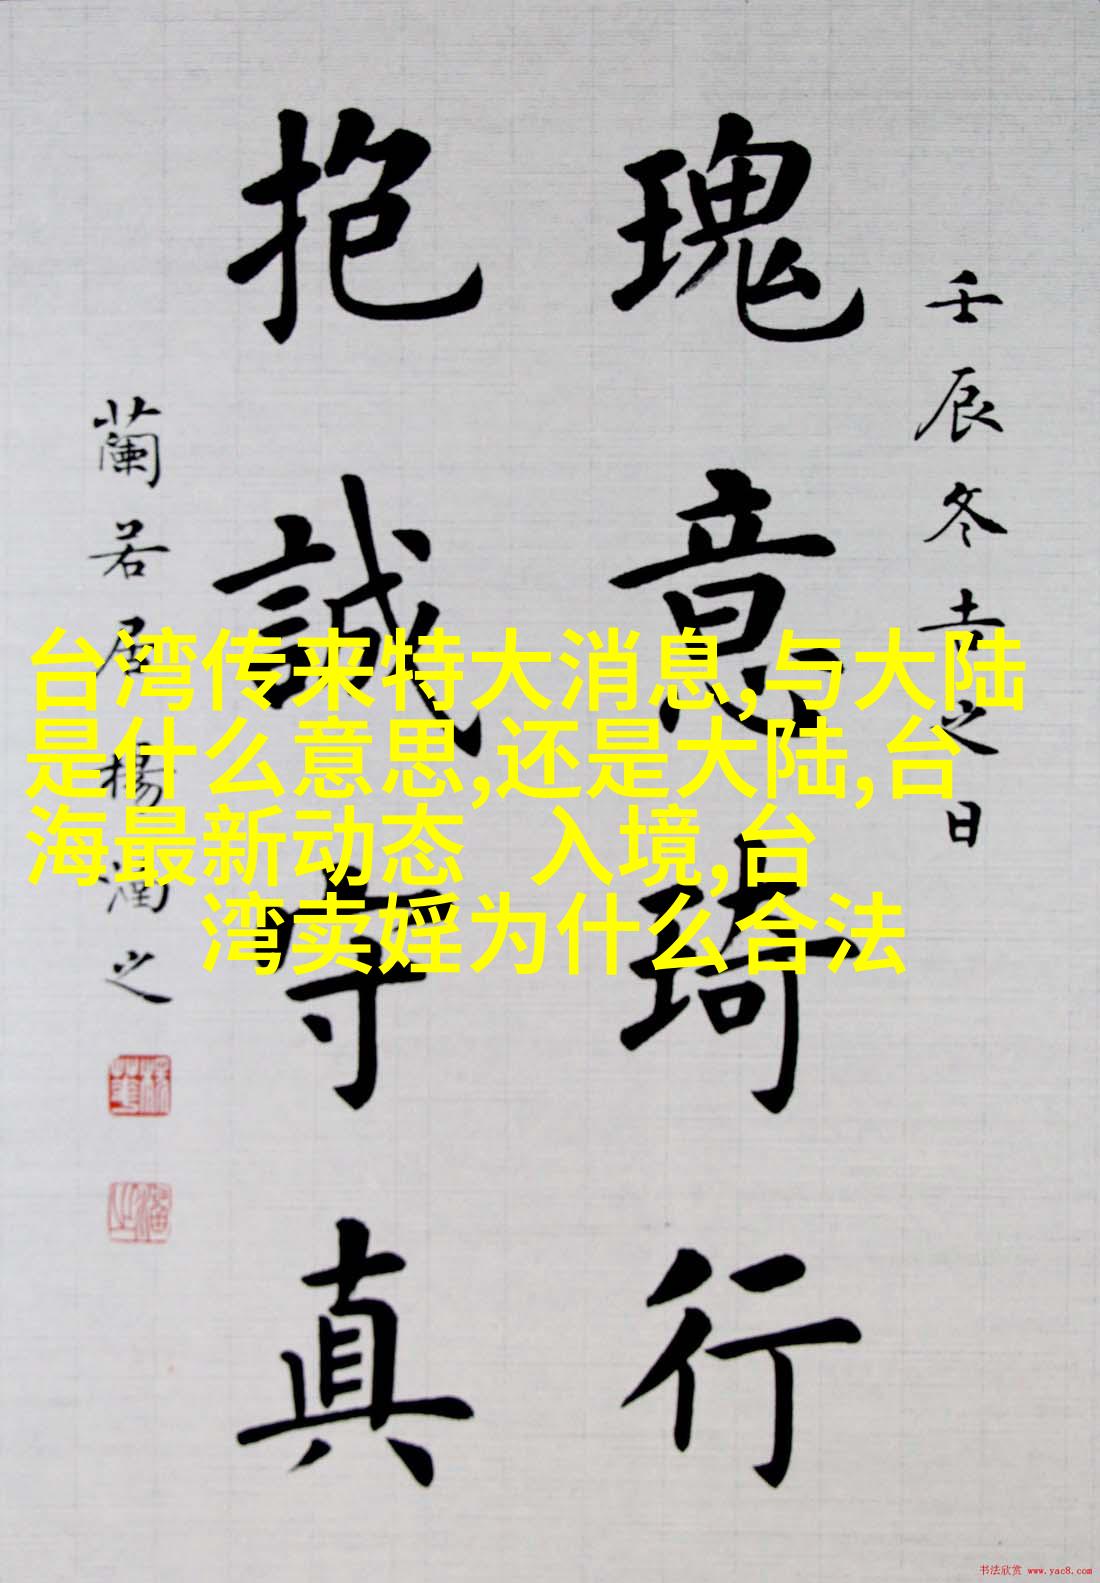 壬辰冬吉之日
瑰意琦行
抱誠守真
蘭若居楊潤之
台湾传来特大消息,与大陆
是什么意思,还是大陆,台
海最新动态 入境,台
湾卖婬为什么合法
书法欣赏 www.yac8.com